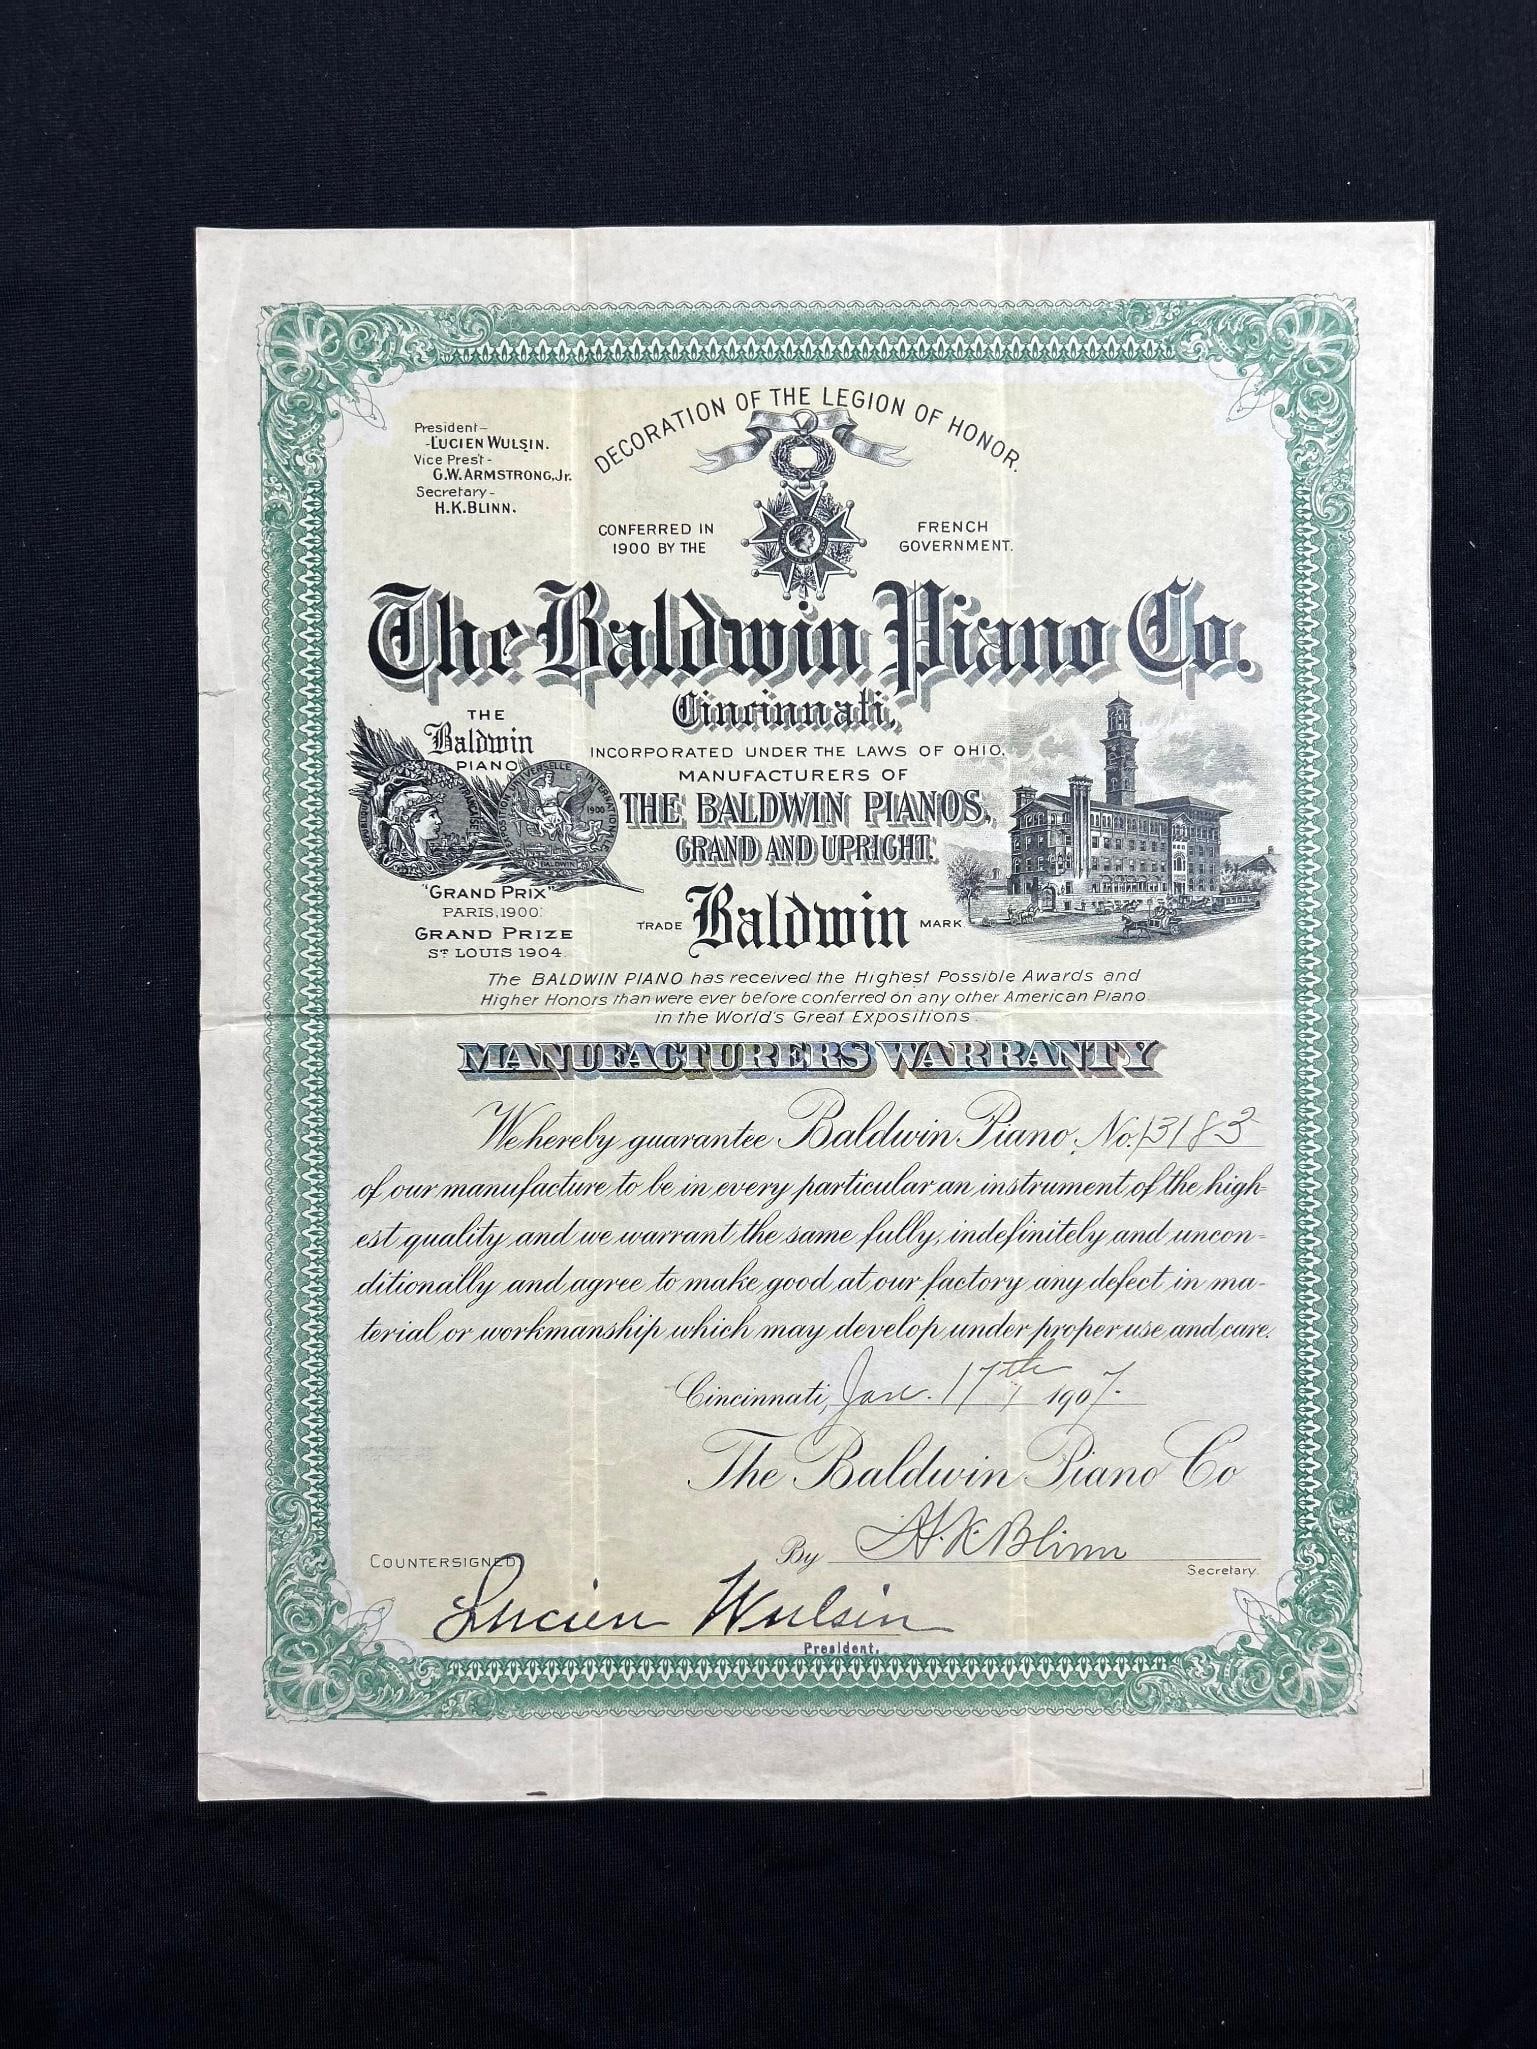 DECORATION OF THE LEGION OF HONOR.
President-
-LUCIEN WULSIN.
Vice Prest-
G.W. ARMSTRONG, Jr.
Secretary-
H.K. BLINN.
CONFERRED IN
1900 BY THE
FRENCH
GOVERNMENT.
The Baldwin Piano Co.
Cincinnati,
INCORPORATED UNDER THE LAWS OF OHIO.
MANUFACTURERS OF
THE BALDWIN PIANOS,
GRAND AND UPRIGHT.
TRADE Baldwin MARK
THE
Baldwin
PIANO
EXPOSITION UNIVERSELLE INTERNATIONALE
1900
BALDWIN
"GRAND PRIX"
PARIS, 1900.
GRAND PRIZE
ST LOUIS 1904.
The BALDWIN PIANO has received the Highest Possible Awards and
Higher Honors than were ever before conferred on any other American Piano
in the World's Great Expositions.
MANUFACTURERS WARRANTY
We hereby guarantee Baldwin Piano, No. 13183
of our manufacture to be in every particular an instrument of the high-
est quality and we warrant the same fully, indefinitely and uncon-
ditionally and agree to make good at our factory any defect in ma-
terial or workmanship which may develop under proper use and care.
Cincinnati, Jan. 17th 1907.
The Baldwin Piano Co
By H.K. Blinn
Secretary.
COUNTERSIGNED
Lucien Wulsin
President.